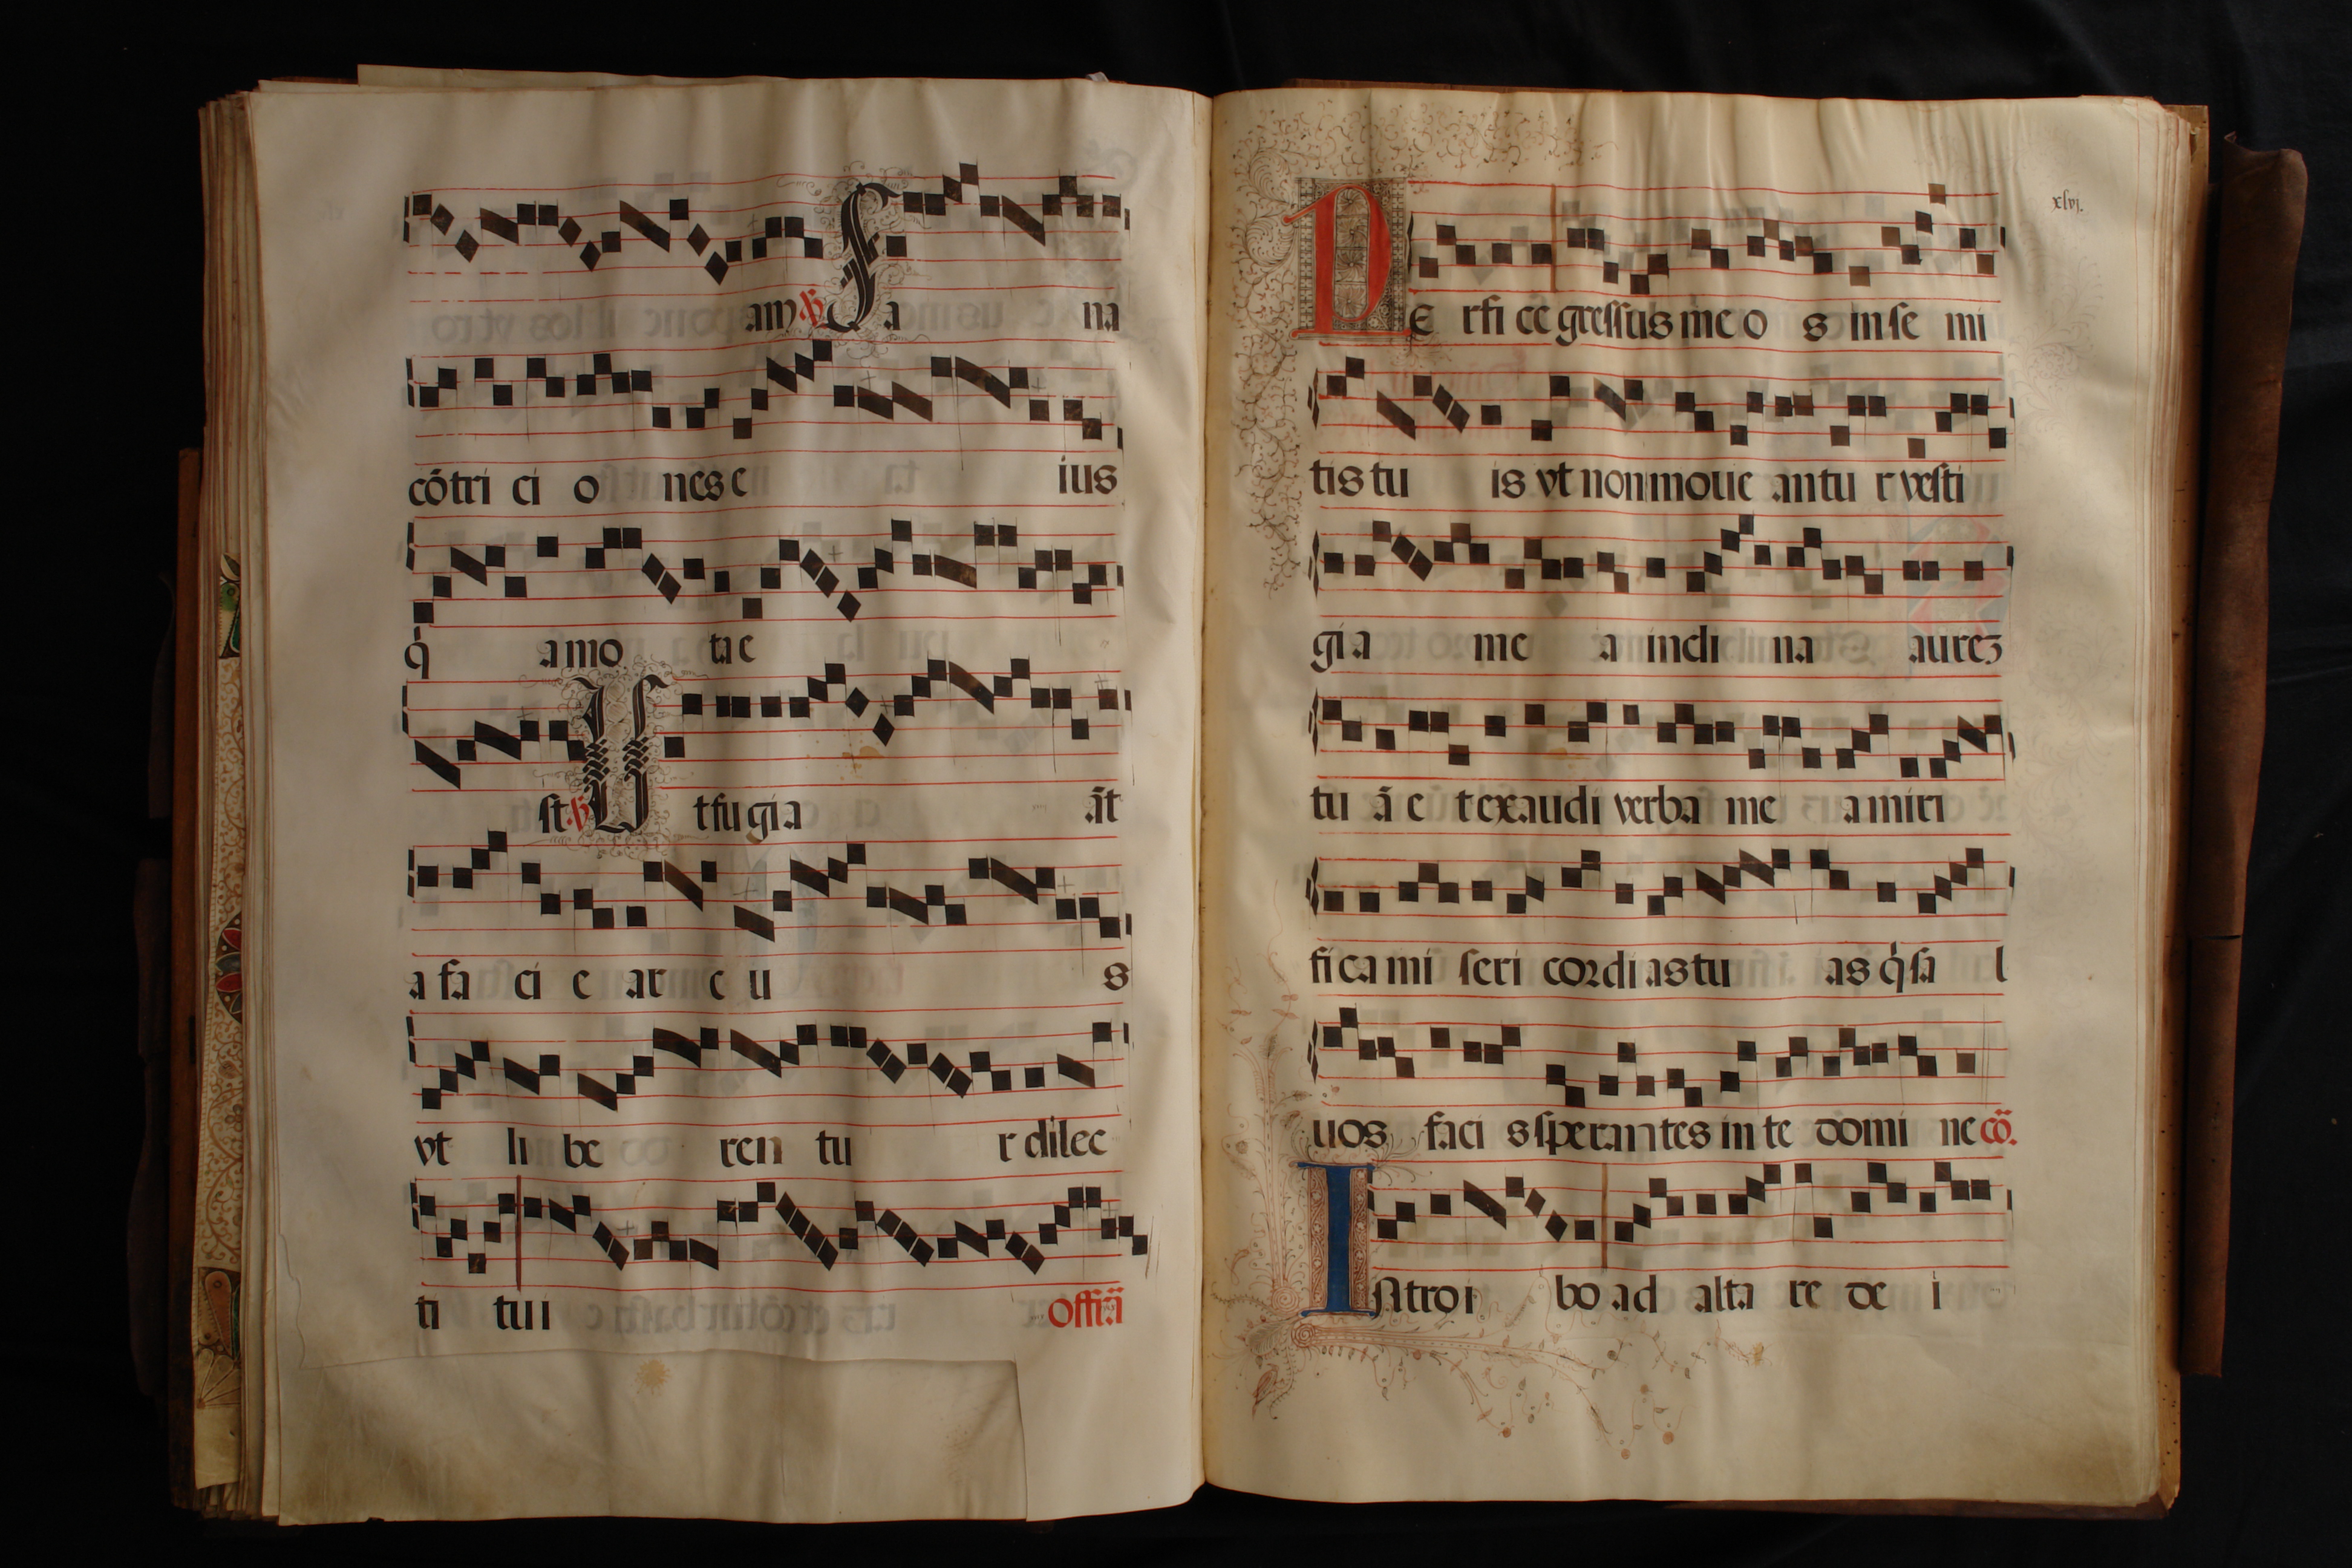 am ℟ Sa na
cōtri ci o nes e ius
q̇ a mo ta e
st ℟ Ut fu gi a āt
a fa ci e ar c u s
vt li be ren tu r dilec
ti tu i Offiā
xlvj.
Pe rfi ce gressus me o s in se mi
tis tu is vt non moue antu r vesti
gi a me a incli na aurez
tu ā e t exaudi verba me a miri
fi ca mi seri cordi as tu as q̇ sa l
uos faci s sperantes in te domi ne cō.
Introi bo ad alta re de i